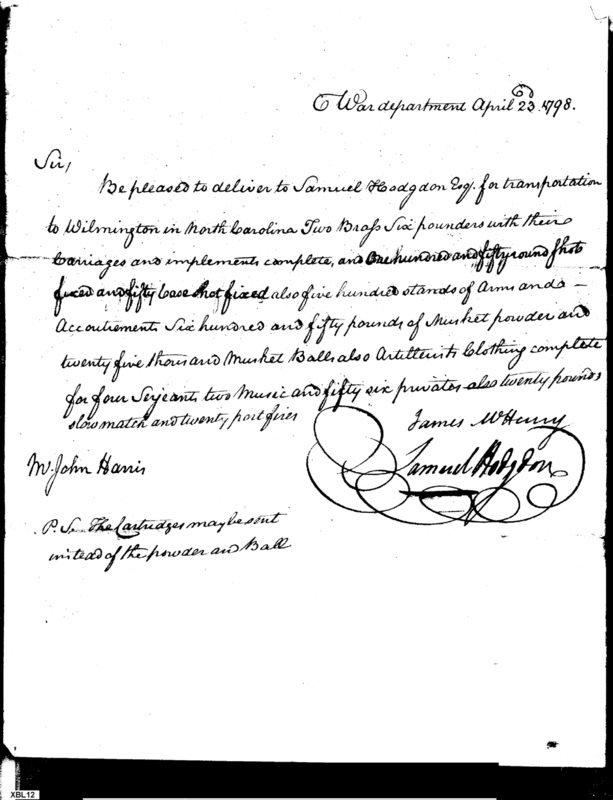 War department April 23d. 1798.
Sir,
Be pleased to deliver to Samuel Hodgdon Esq. for transportation
to Wilmington in North Carolina Two Brass Six pounders with their
Carriages and implements complete, and One hundred and fifty round shot
fixed and fifty Case shot fixed also five hundred stands of Arms and
Accoutrements Six hundred and fifty pounds of Musket powder and
twenty five thousand Musket Balls also Artillerists Clothing complete
for four Serjeants two Music and fifty six privates also twenty pounds
slow match and twenty port fires
James McHenry
Samuel Hodgdon
Mr. John Harris
P. S. The Cartridges may be sent
instead of the powder and Ball
XBL12